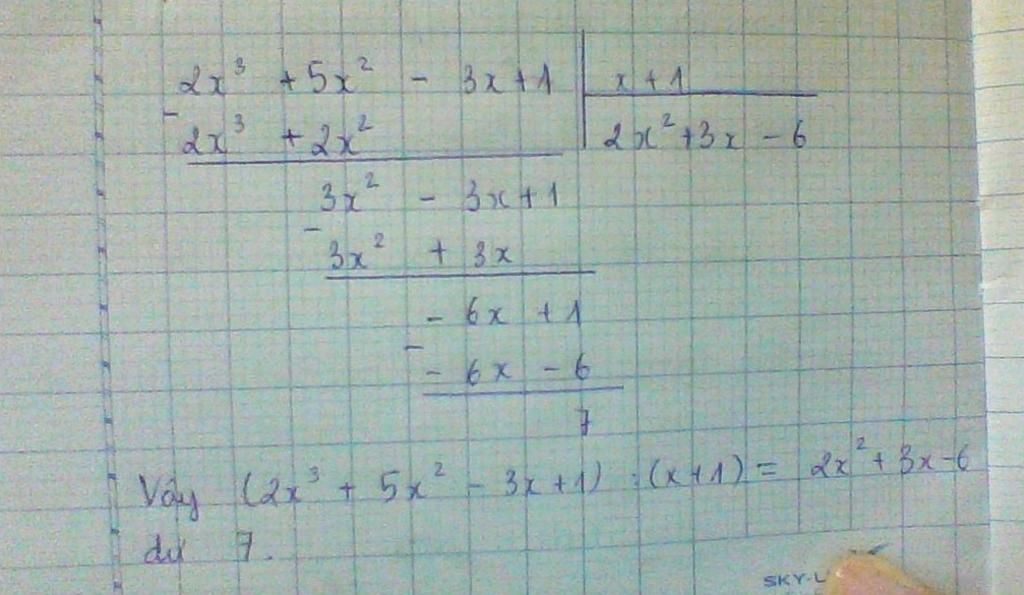 2x³ + 5x² - 3x + 1 | x + 1
- 2x³ + 2x² | 2x² + 3x - 6
3x² - 3x + 1
- 3x² + 3x
- 6x + 1
- - 6x - 6
7
Vậy (2x³ + 5x² - 3x + 1) : (x + 1) = 2x² + 3x - 6
dư 7.
SKY-L